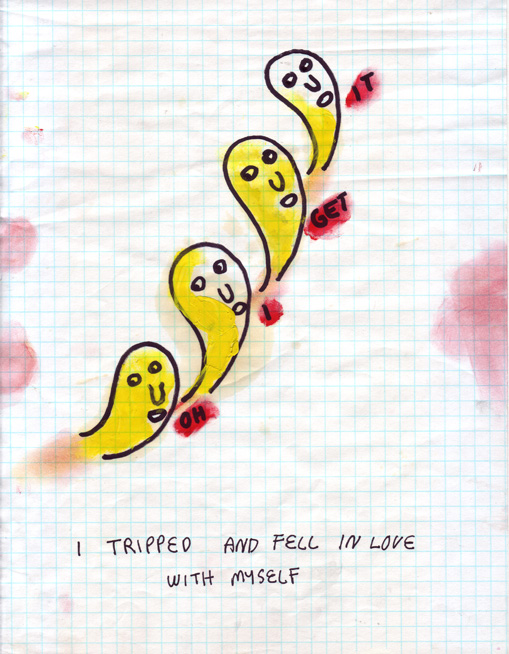 OH
I
GET
IT
I TRIPPED AND FELL IN LOVE
WITH MYSELF